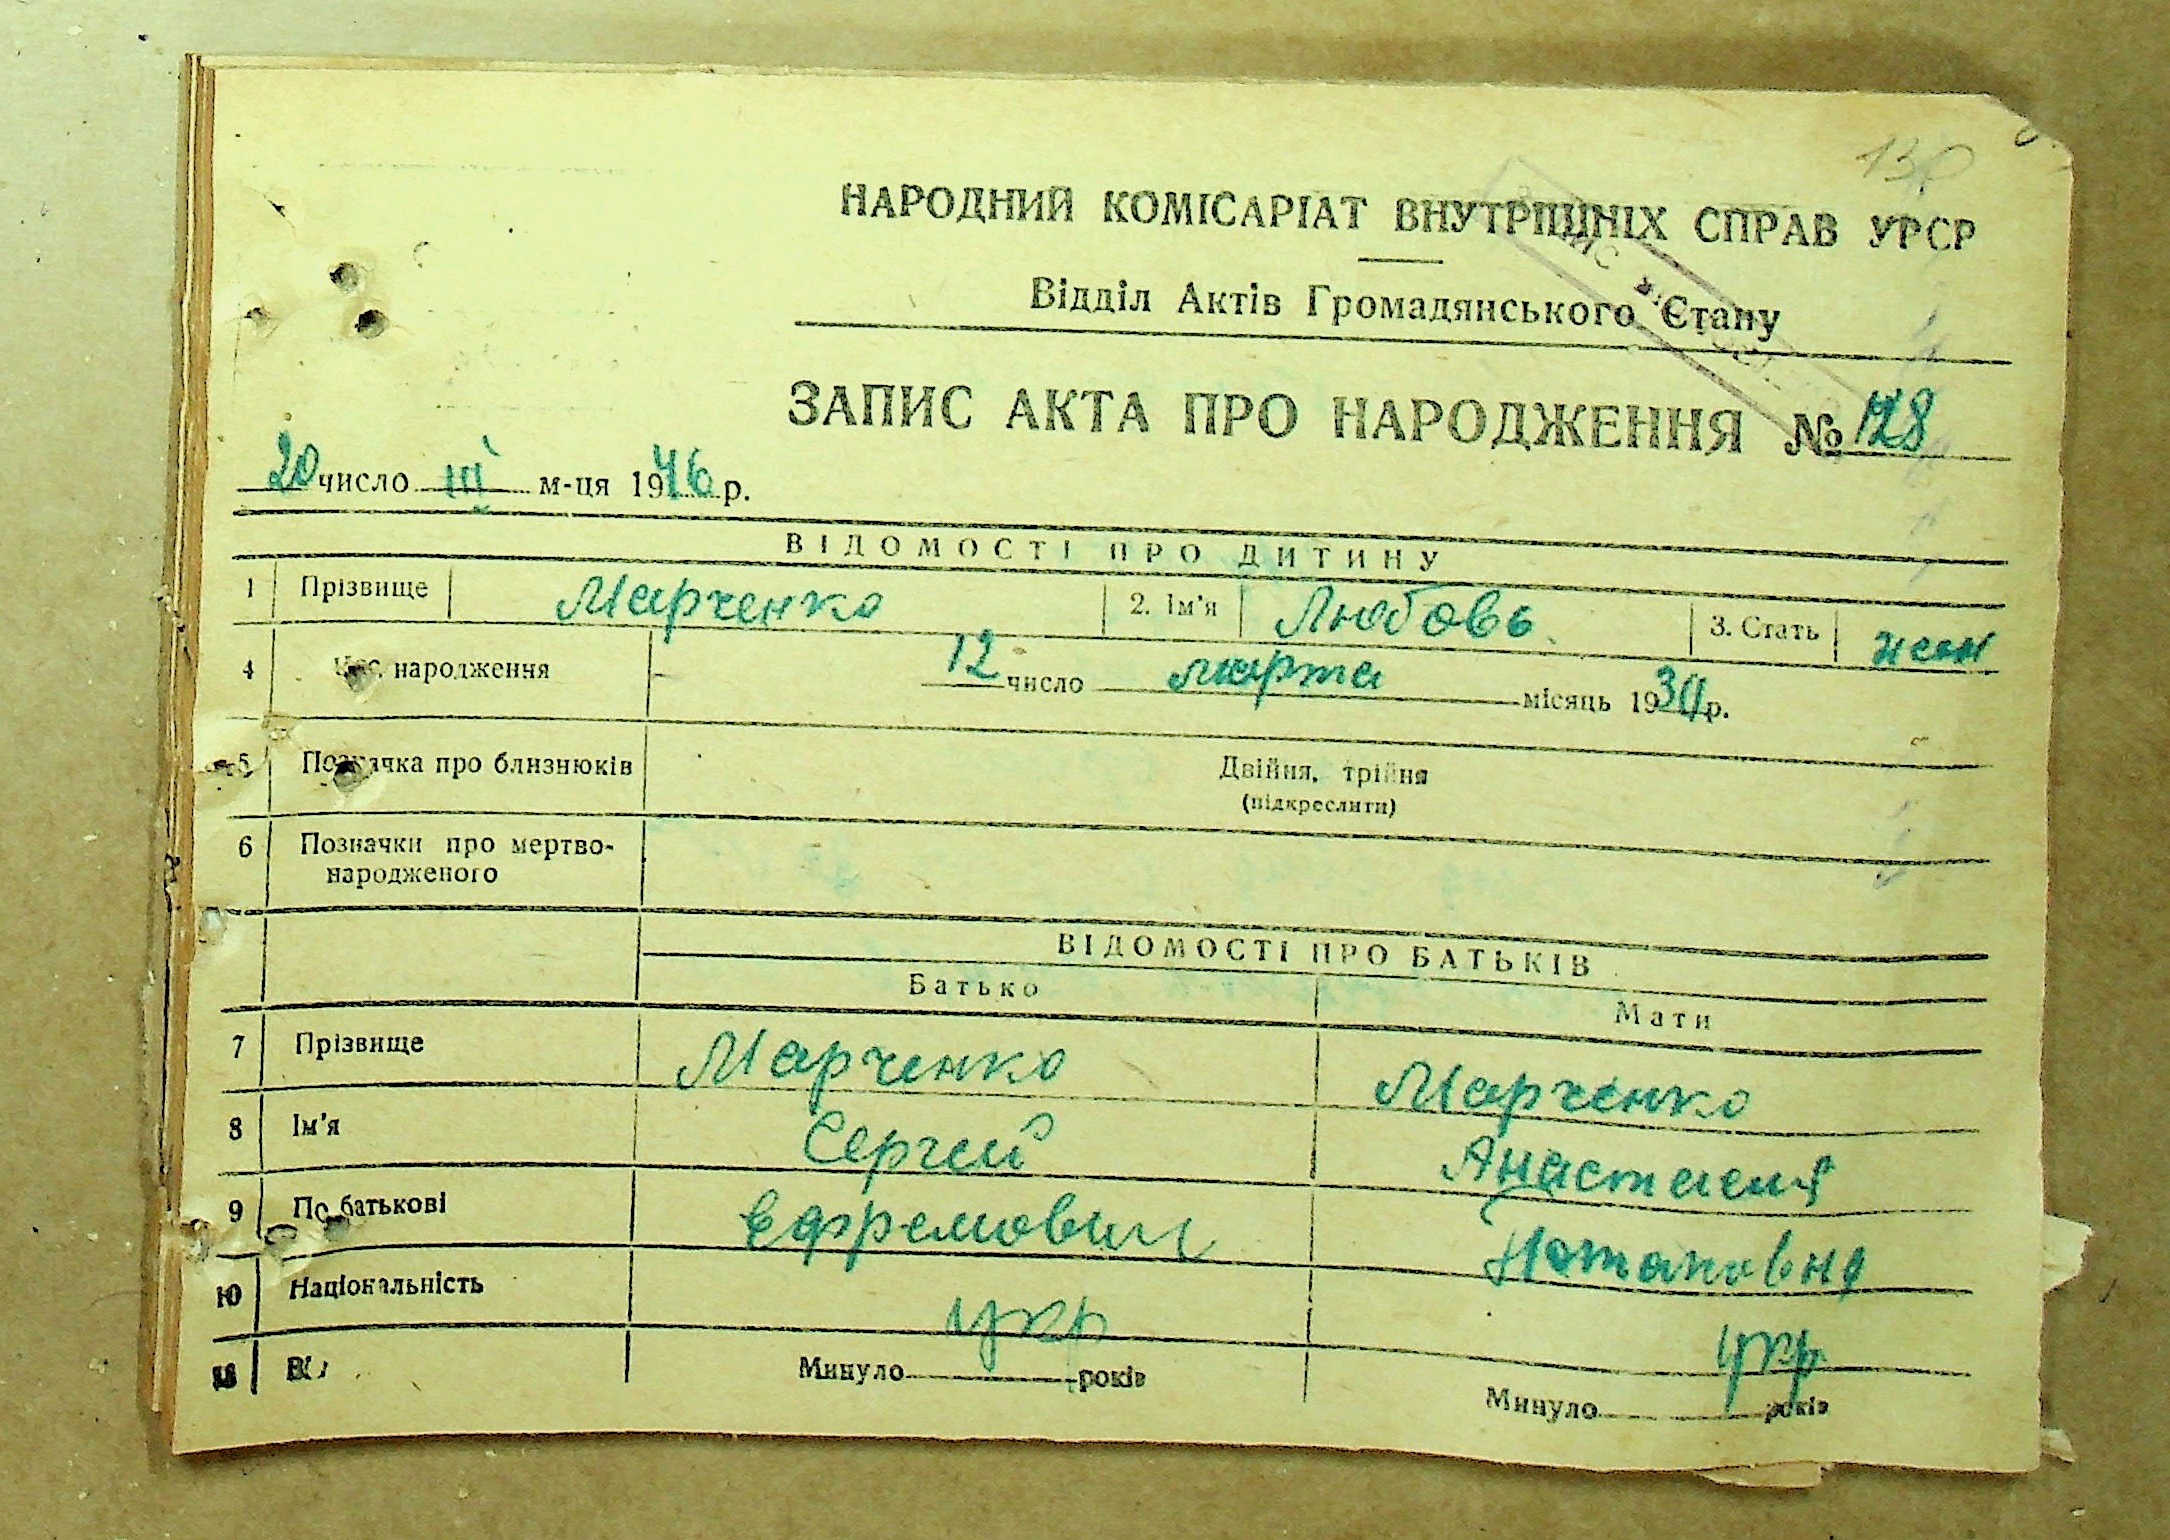 130
НАРОДНИЙ КОМІСАРІАТ ВНУТРІШНІХ СПРАВ УРСР
Відділ Актів Громадянського Стану
ЗАПИС АКТА ПРО НАРОДЖЕННЯ № 128
20 число III м-ця 1946 р.
ВІДОМОСТІ ПРО ДИТИНУ
1 Прізвище Марченко 2. Ім'я Любовь 3. Стать жен
4 народження 12 число марта місяць 19 р.
5 Позначка про близнюків Двійня, трійня
(підкреслити)
6 Позначки про мертво-
народженого
ВІДОМОСТІ ПРО БАТЬКІВ
Батько Мати
7 Прізвище Марченко Марченко
8 Ім'я Сергей Анастасия
9 По батькові Ефремович Потаповна
10 Національність укр укр
Минуло років Минуло років